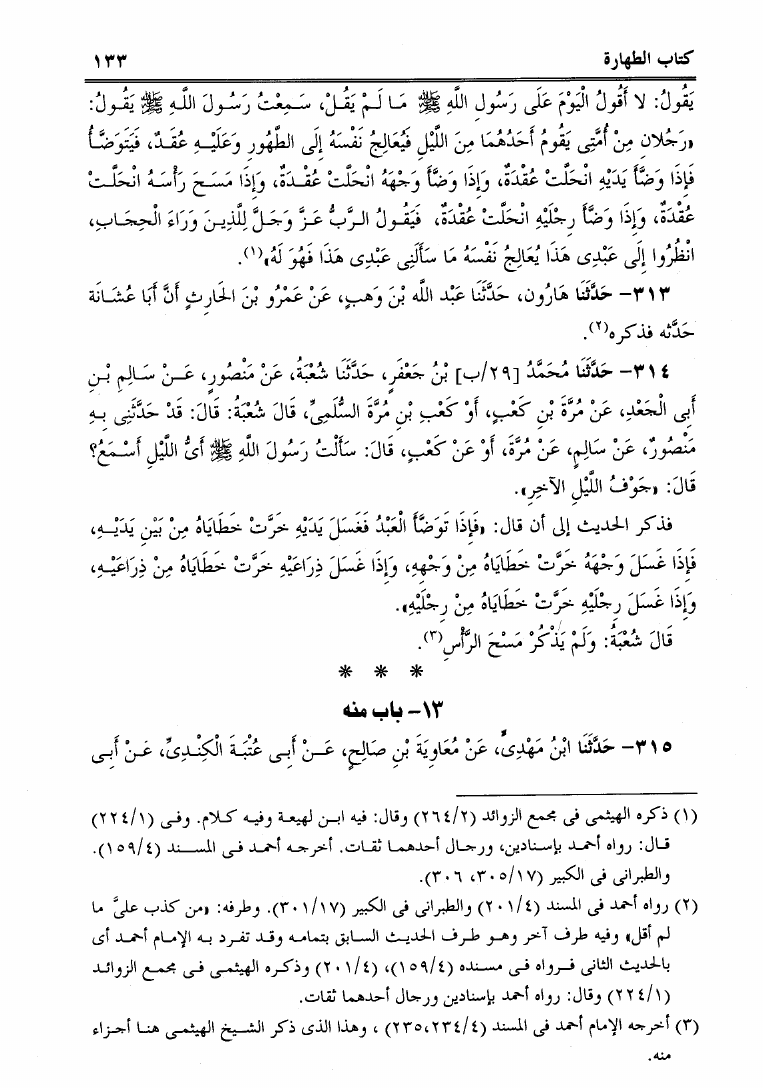 كتاب الطهارة ١٣٣
يَقُولُ: لا أَقُولُ الْيَوْمَ عَلَى رَسُولِ اللَّهِ ﷺ مَا لَمْ يَقُلْ، سَمِعْتُ رَسُولَ اللَّهِ ﷺ يَقُولُ:
«رَجُلانِ مِنْ أُمَّتِى يَقُومُ أَحَدُهُمَا مِنَ اللَّيْلِ فَيُعَالِجُ نَفْسَهُ إِلَى الطَّهُورِ وَعَلَيْهِ عُقَدٌ، فَيَتَوَضَّأُ
فَإِذَا وَضَّأَ يَدَيْهِ انْحَلَّتْ عُقْدَةٌ، وَإِذَا وَضَّأَ وَجْهَهُ انْحَلَّتْ عُقْدَةٌ، وَإِذَا مَسَحَ رَأْسَهُ انْحَلَّتْ
عُقْدَةٌ، وَإِذَا وَضَّأَ رِجْلَيْهِ انْحَلَّتْ عُقْدَةٌ، فَيَقُولُ الرَّبُّ عَزَّ وَجَلَّ لِلَّذِينَ وَرَاءَ الْحِجَابِ،
انْظُرُوا إِلَى عَبْدِى هَذَا يُعَالِجُ نَفْسَهُ مَا سَأَلَنِى عَبْدِى هَذَا فَهُوَ لَهُ»(١).
٣١٣- حَدَّثَنَا هَارُون، حَدَّثَنَا عَبْد الله بْنَ وَهبٍ، عَنْ عَمْرُو بْنَ الحَارِثِ أَنَّ أَبَا عُشَانَة
حَدَّثه فذكره(٢).
٣١٤- حَدَّثَنَا مُحَمَّدُ [٢٩/ب] بْنُ جَعْفَرٍ، حَدَّثَنَا شُعْبَةُ، عَنْ مَنْصُورٍ، عَنْ سَالِمِ بْنِ
أَبِى الْجَعْدِ، عَنْ مُرَّةَ بْنِ كَعْبٍ، أَوْ كَعْبِ بْنِ مُرَّةَ السُّلَمِىِّ، قَالَ شُعْبَةُ: قَالَ: قَدْ حَدَّثَنِى بِهِ
مَنْصُورٌ، عَنْ سَالِمٍ، عَنْ مُرَّةَ، أَوْ عَنْ كَعْبٍ، قَالَ: سَأَلْتُ رَسُولَ اللَّهِ ﷺ أَىُّ اللَّيْلِ أَسْمَعُ؟
قَالَ: «جَوْفُ اللَّيْلِ الآخِرِ».
فذكر الحديث إلى أن قال: «فَإِذَا تَوَضَّأَ الْعَبْدُ فَغَسَلَ يَدَيْهِ خَرَّتْ خَطَايَاهُ مِنْ بَيْنِ يَدَيْهِ،
فَإِذَا غَسَلَ وَجْهَهُ خَرَّتْ خَطَايَاهُ مِنْ وَجْهِهِ، وَإِذَا غَسَلَ ذِرَاعَيْهِ خَرَّتْ خَطَايَاهُ مِنْ ذِرَاعَيْهِ،
وَإِذَا غَسَلَ رِجْلَيْهِ خَرَّتْ خَطَايَاهُ مِنْ رِجْلَيْهِ».
قَالَ شُعْبَةُ: وَلَمْ يَذْكُرْ مَسْحَ الرَّأْسِ(٣).
* * *
١٣- باب منه
٣١٥- حَدَّثَنَا ابْنُ مَهْدِىٍّ، عَنْ مُعَاوِيَةَ بْنِ صَالِحٍ، عَنْ أَبِى عُتْبَةَ الْكِنْدِىِّ، عَنْ أَبِى
(١) ذكره الهيثمى فى مجمع الزوائد (٢٦٤/٢) وقال: فيه ابن لهيعة وفيه كلام. وفى (٢٢٤/١)
قال: رواه أحمد بإسنادين، ورجال أحدهما ثقات. أخرجه أحمد فى المسند (١٥٩/٤).
والطبرانى فى الكبير (٣٠٥/١٧، ٣٠٦).
(٢) رواه أحمد فى المسند (٢٠١/٤) والطبرانى فى الكبير (٣٠١/١٧). وطرفه: «من كذب علىَّ ما
لم أقل» وفيه طرف آخر وهو طرف الحديث السابق بتمامه وقد تفرد به الإمام أحمد أى
بالحديث الثانى فرواه فى مسنده (١٥٩/٤)، (٢٠١/٤) وذكره الهيثمى فى مجمع الزوائد
(٢٢٤/١) وقال: رواه أحمد بإسنادين ورجال أحدهما ثقات.
(٣) أخرجه الإمام أحمد فى المسند (٢٣٥،٢٣٤/٤) ، وهذا الذى ذكر الشيخ الهيثمى هنا أجزاء
منه.